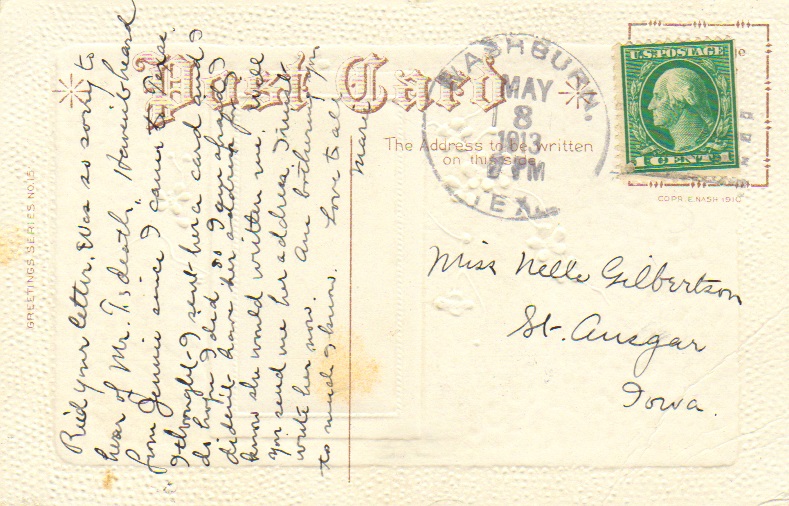 Rec'd your letter. Was so sorry to
hear of Mr. T's death. Haven't heard
from Jennie since I came to Texas.
I thought I sent her a card and I
do hope I did so I am afraid I
didn't have her address for I
know she would written me. Will
you send me her address I must
write her now. Am bothering you
to much I know. Love to all
Mary
Post Card
The Address to be written
on this side.
WASHBURN,
MAY
8
1913
PM
TEX.
U.S. POSTAGE
1 CENT 1
COPR. E. NASH 1910
Miss Nelle Gilbertson
St. Ansgar
Iowa.
GREETINGS SERIES NO. 15